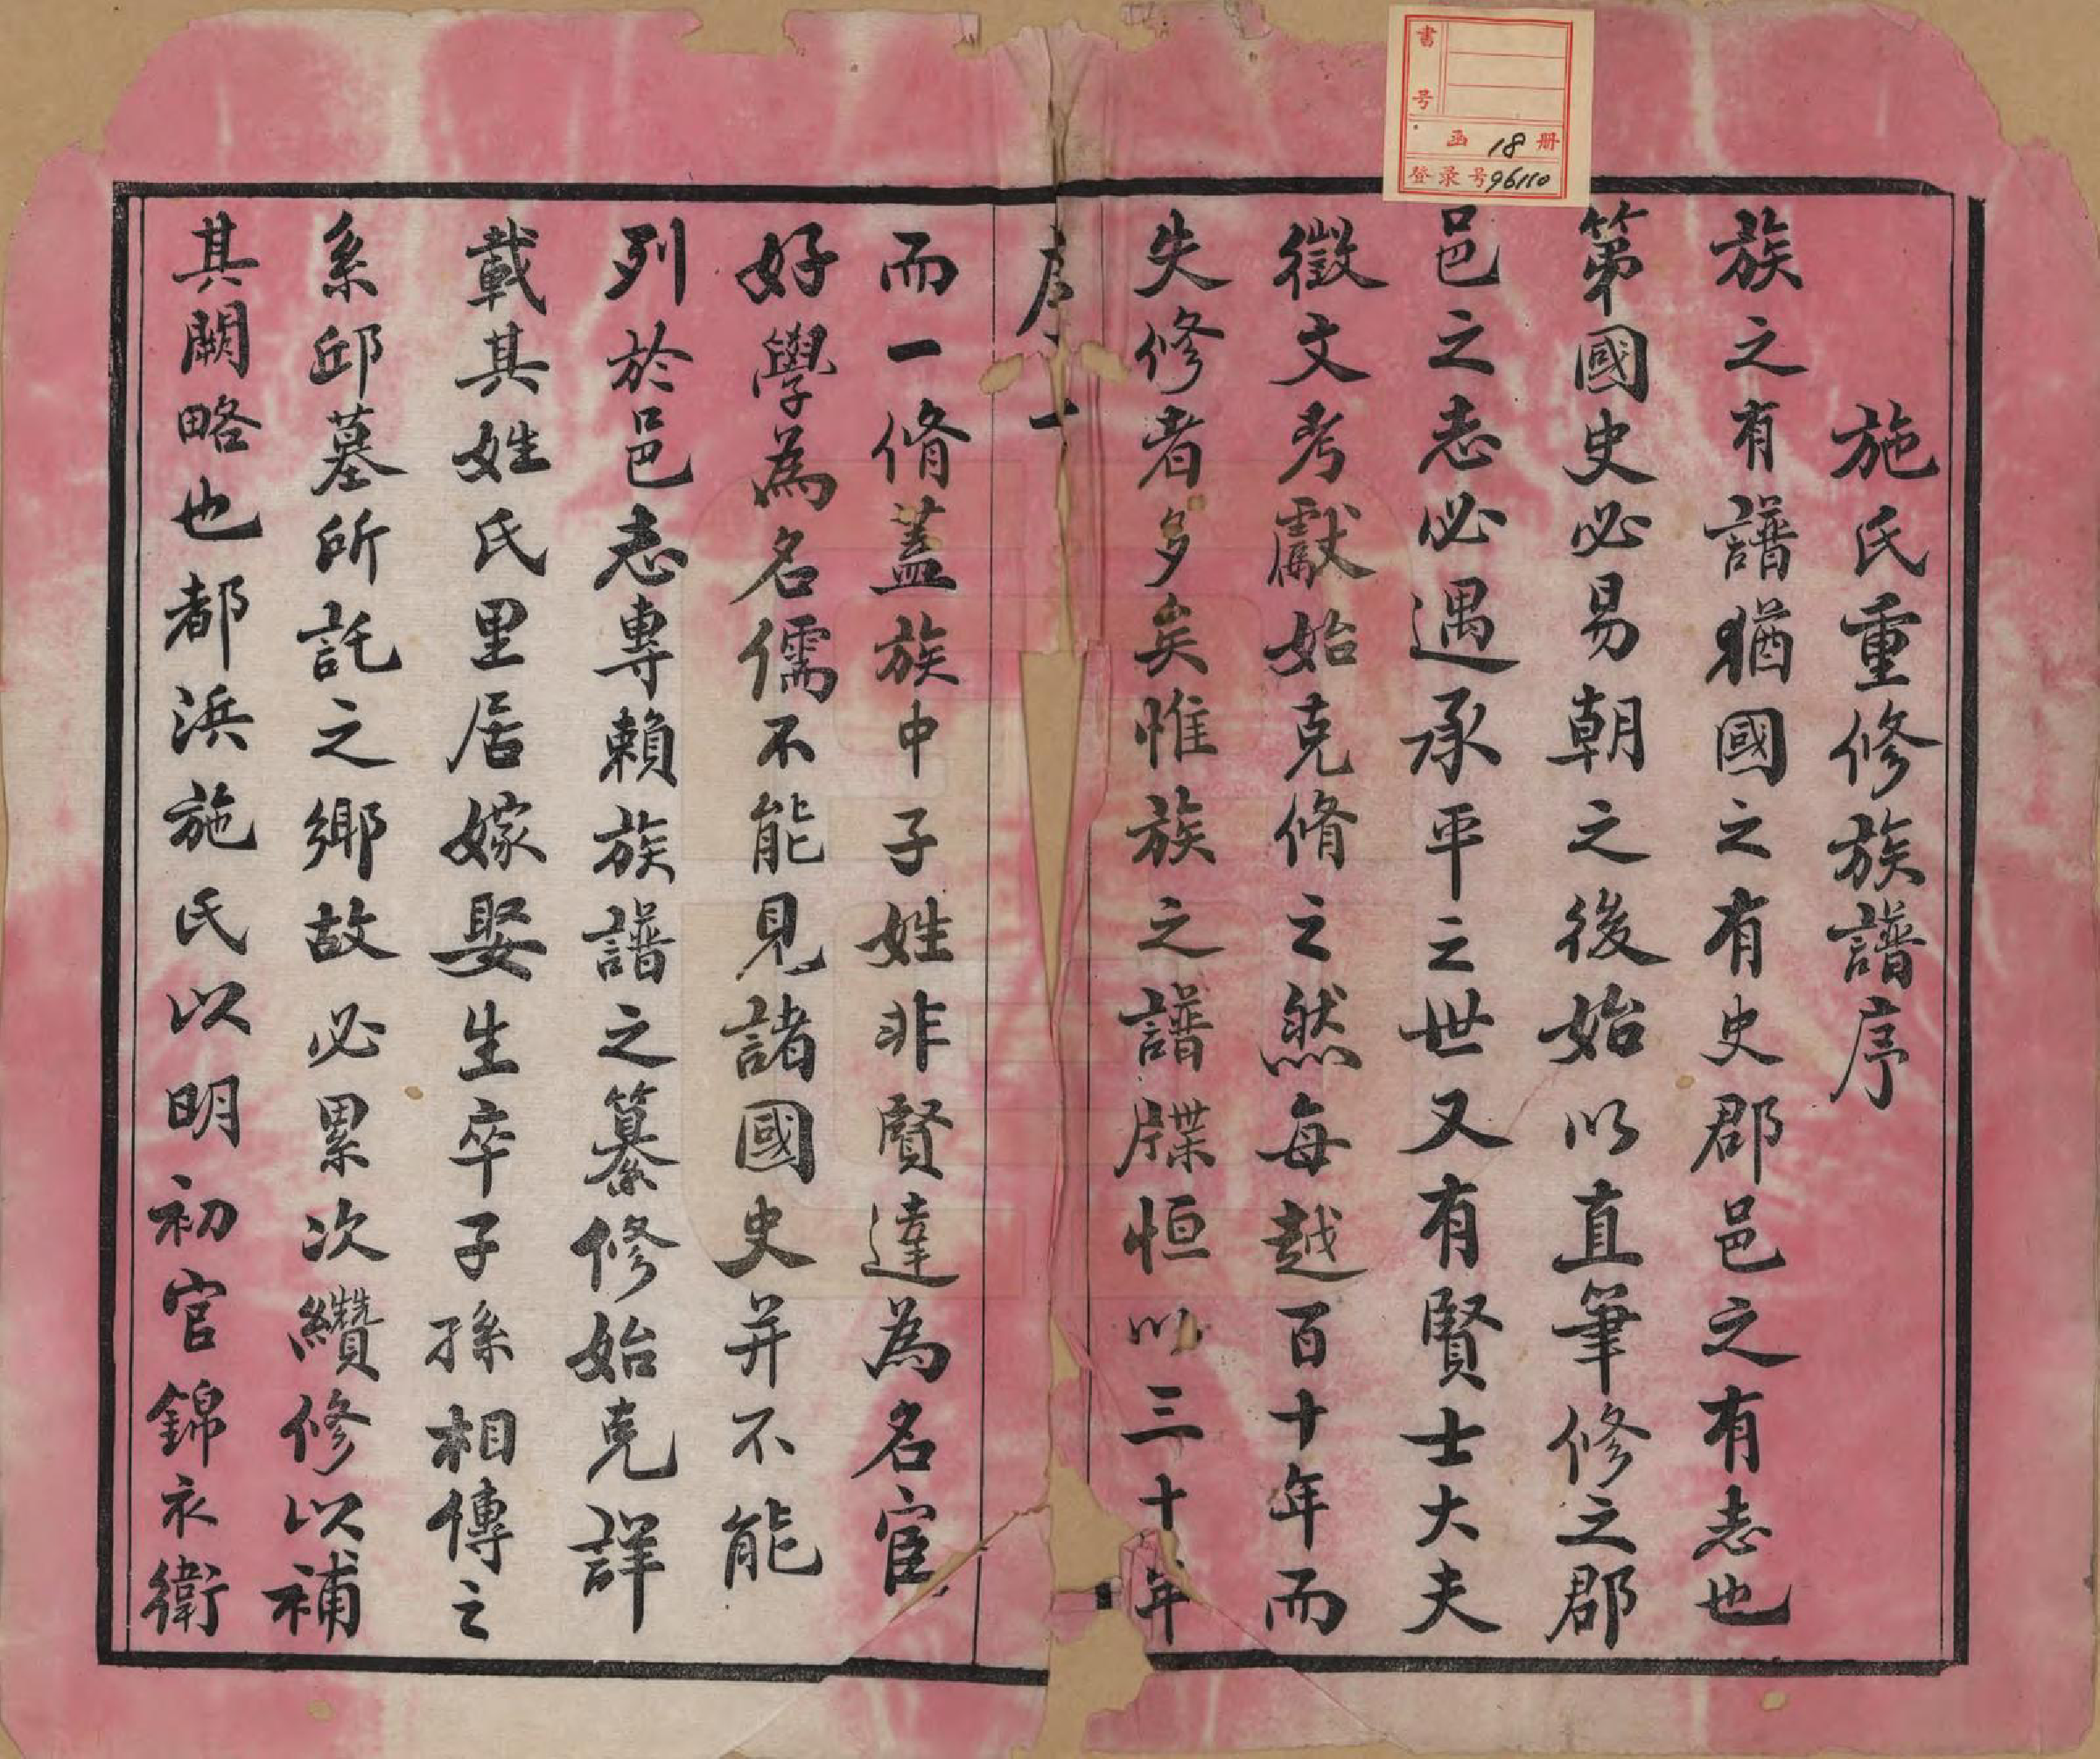 施氏重修族譜序
族之有譜猶國之有史郡邑之有志也
第國史必易朝之後始以直筆修之郡
邑之志必遇承平之世又有賢士大夫
徵文考獻始克脩之然每越百十年而
失修者多矣惟族之譜牒恒以三十年
序 一
而一脩蓋族中子姓非賢達為名宦
好學為名儒不能見諸國史并不能
列於邑志專賴族譜之纂修始克詳
載其姓氏里居嫁娶生卒子孫相傳之
系邱墓所託之鄉故必累次纘修以補
其闕略也都浜施氏以明初官錦衣衛
書号
函 18 册
登录号 96110